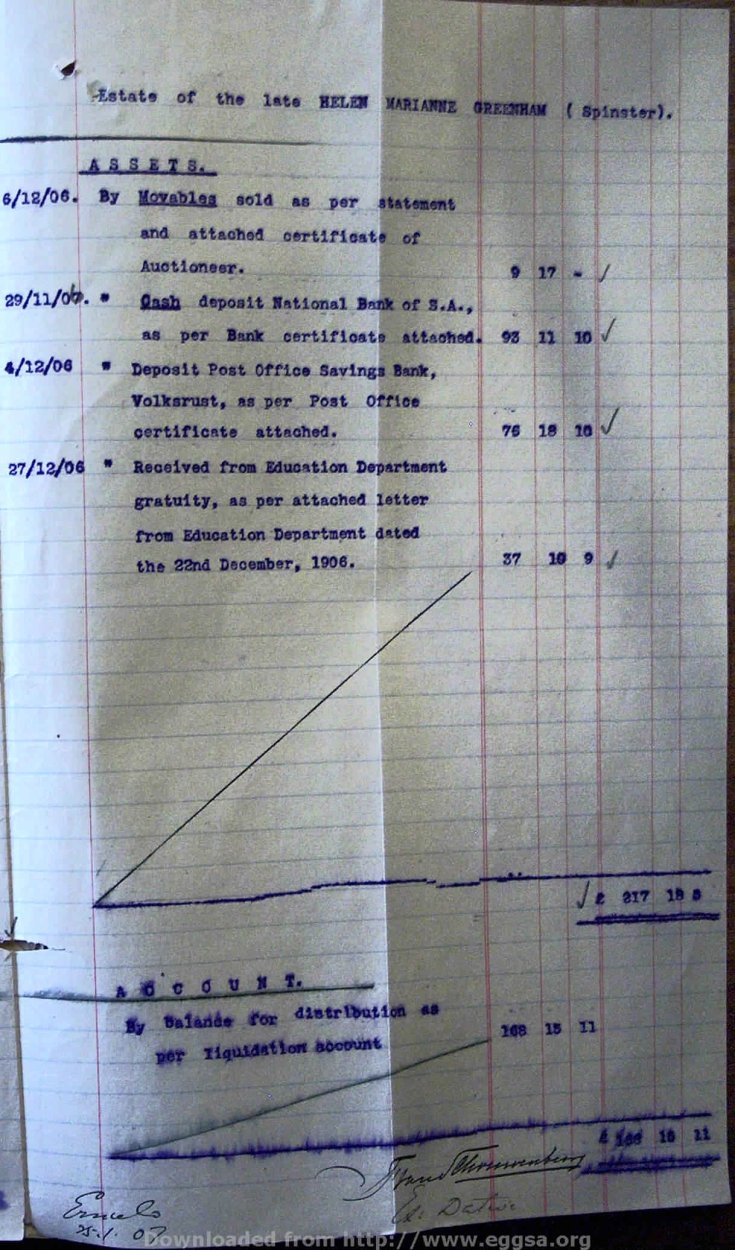 Estate of the late HELEN MARIANNE GREENHAM ( Spinster).
ASSETS.
6/12/06. By Movables sold as per statement
and attached certificate of
Auctioneer. 9 17 -
29/11/06. " Cash deposit National Bank of S.A.,
as per Bank certificate attached. 93 11 10
4/12/06 " Deposit Post Office Savings Bank,
Volksrust, as per Post Office
certificate attached. 76 18 10
27/12/06 " Received from Education Department
gratuity, as per attached letter
from Education Department dated
the 22nd December, 1906. 37 10 9
£ 217 18 5
ACCOUNT.
By balance for distribution as
per liquidation account 168 15 11
£ 168 15 11
Ex: Dative
Ermelo
25-1-07
Downloaded from http://www.eggsa.org